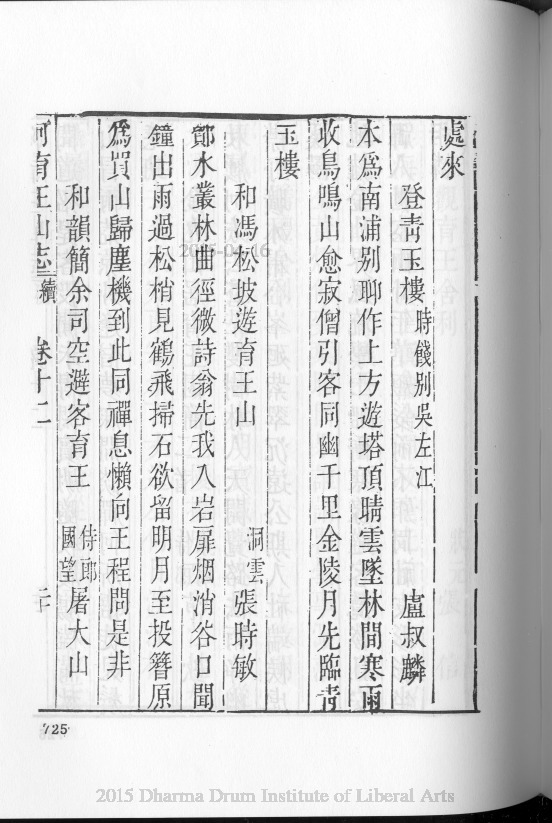 處來
登靑玉樓 時餞別吳左江 盧叔麟
本爲南浦別聊作上方遊塔頂晴雲墜林間寒雨
收鳥鳴山愈寂僧引客同幽千里金陵月先臨靑
玉樓
和馮松坡遊育王山 洞雲 張時敏
鄮水叢林曲徑微詩翁先我入岩扉烟消谷口聞
鐘出雨過松梢見鶴飛掃石欲留明月至投簪原
爲買山歸塵機到此同禪息懶向王程問是非
和韻簡余司空避客育王 侍郎國望 屠大山
阿育王山志 續 卷十二
725
2015 Dharma Drum Institute of Liberal Arts